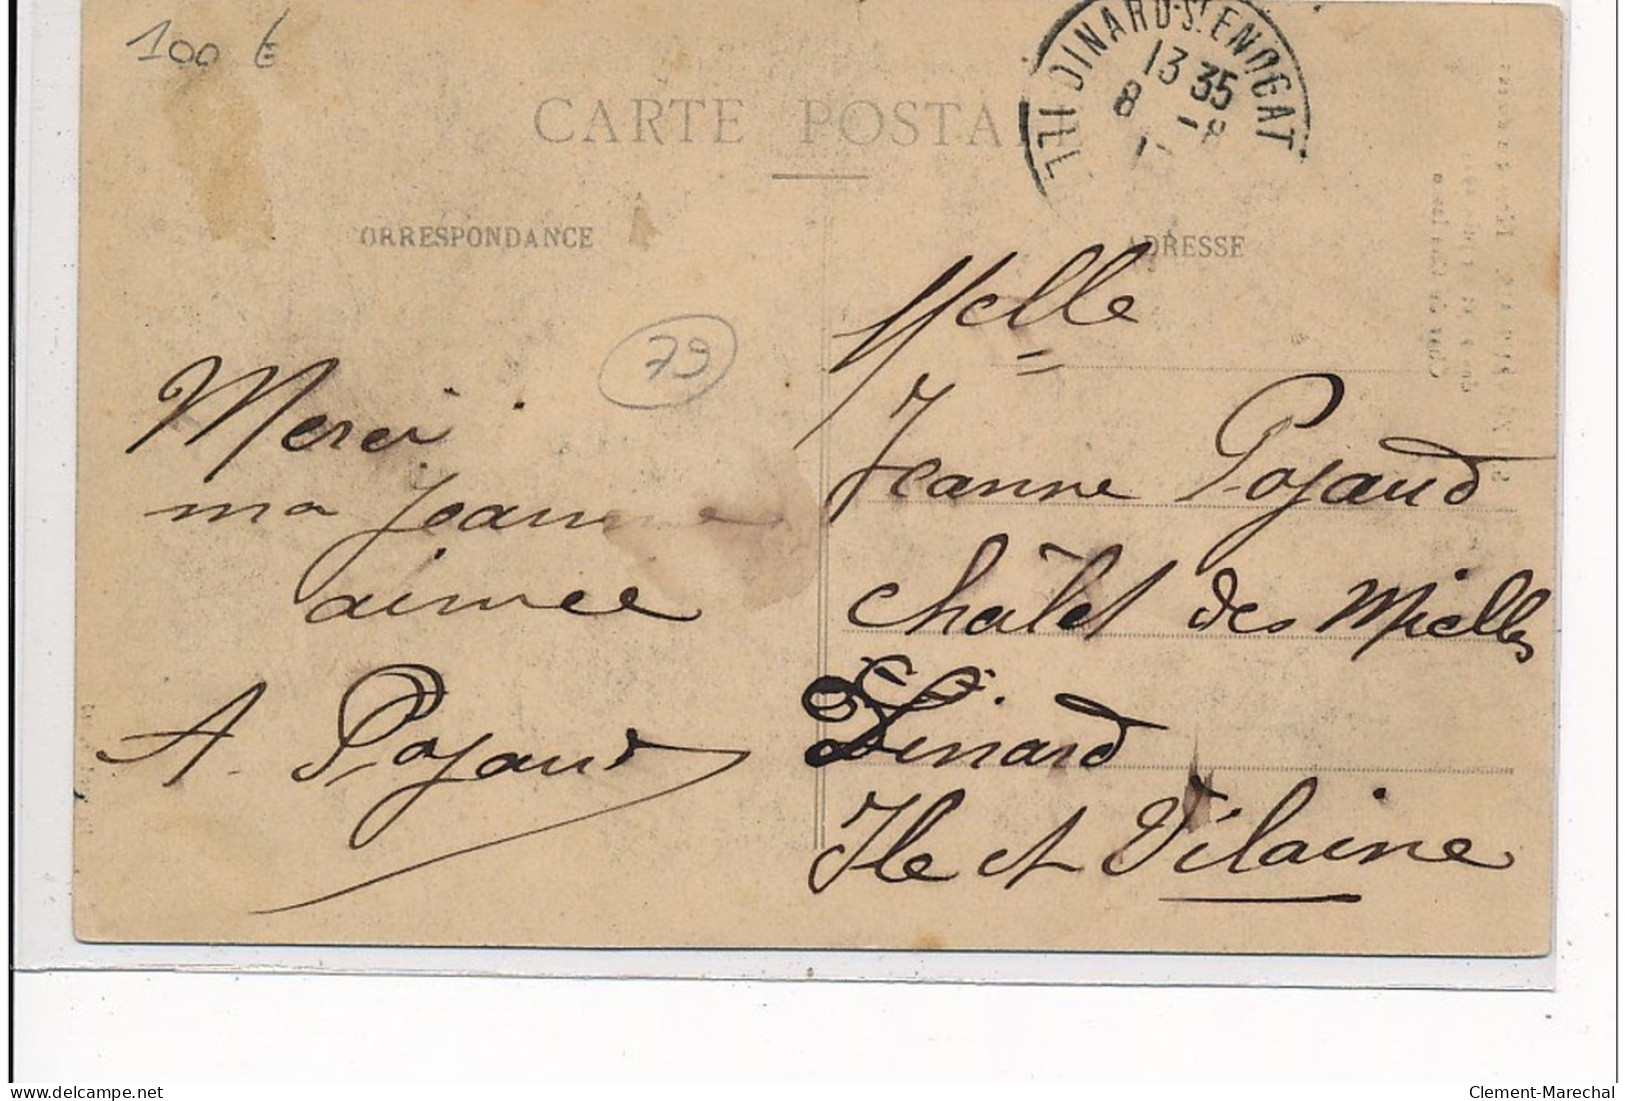 100 €
DINARD-St ENOGAT
13 35
8 -8
CARTE POSTA
ORRESPONDANCE
ADRESSE
79
Merci
ma Jeanne
aimée
A. Pojaud
Melle
Jeanne Pojaud
châlet des Mielles
Dinard
Ile et Vilaine
delcampe.net
Clement-Marechal